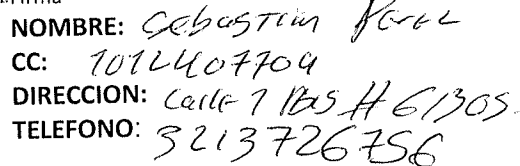 Firma
NOMBRE: Sebastian Perez
CC: 1012407704
DIRECCION: Calle 1 # 61305
TELEFONO: 3213726756